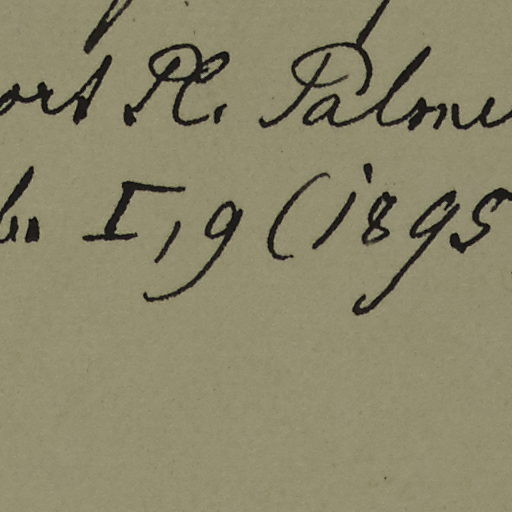 ort Pl. Palme
b. I, 9 (1895